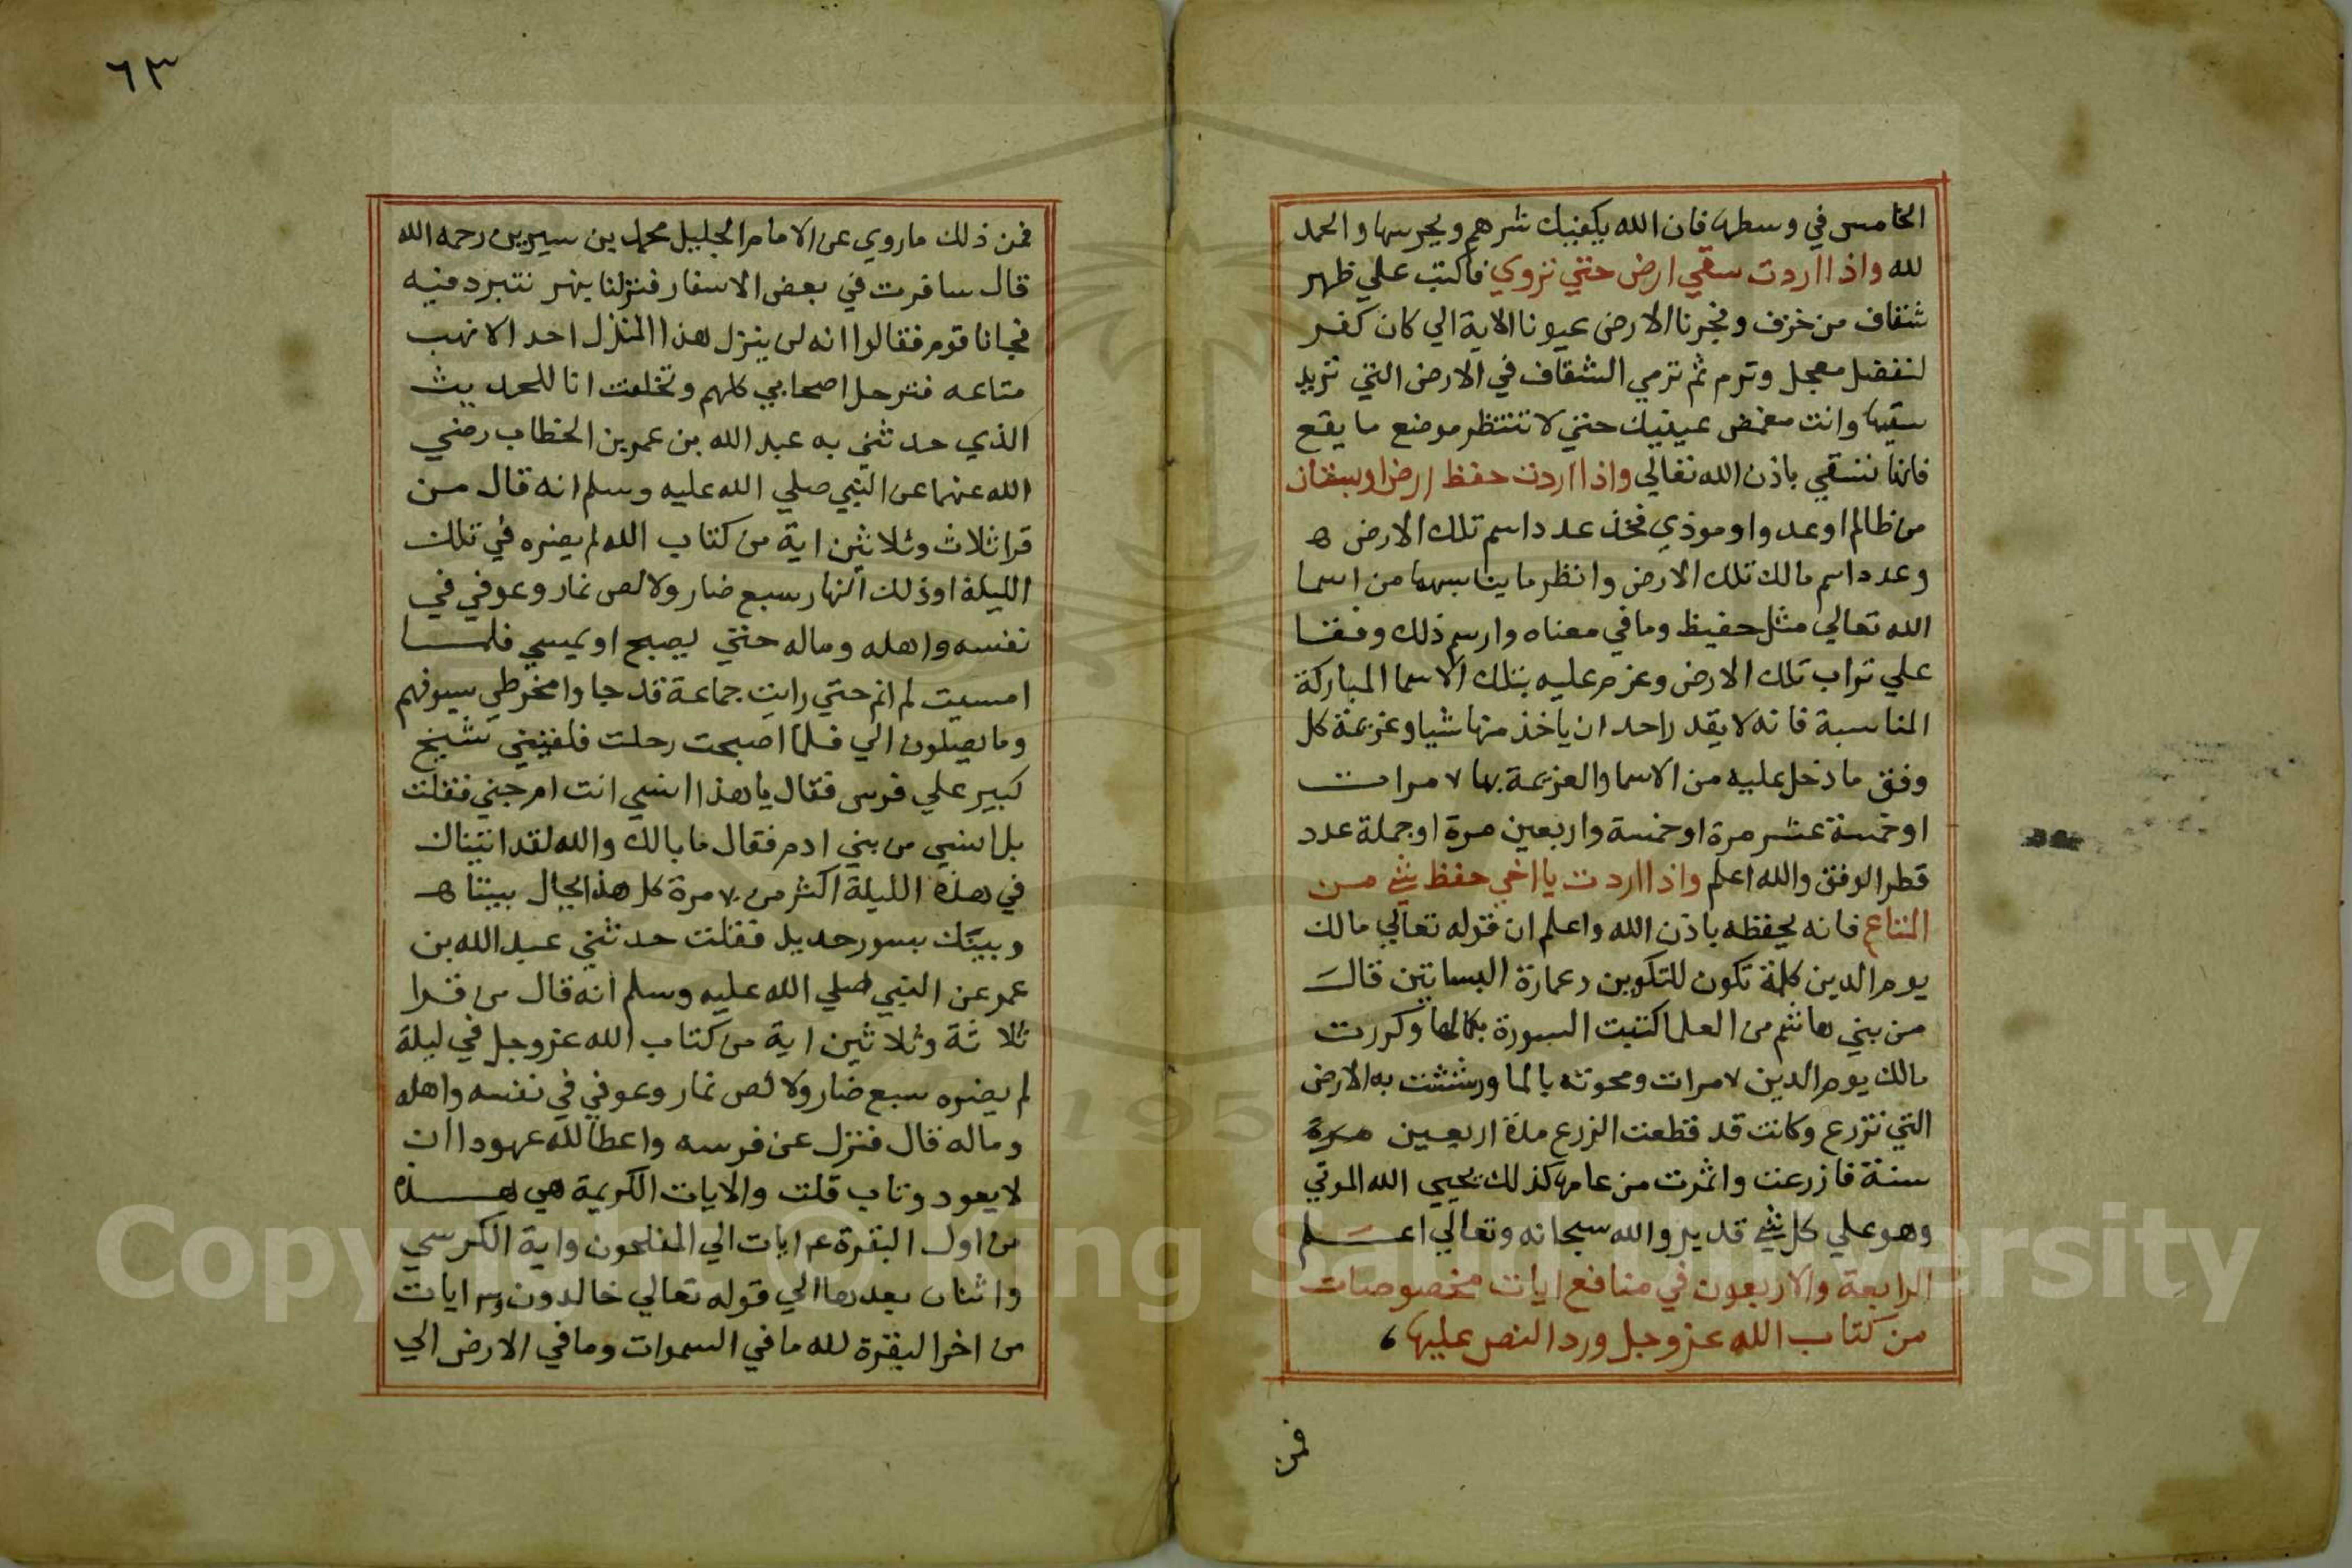 الخامس في وسطها فان الله يكفيك شرهم ويحرسها والحمد
لله واذا اردت سقي ارض حتي تروي فاكتب علي ظهر
شقاف من خزف وفجرنا الارض عيونا الاية الي كان كفر
لتفضل معجل وترم ثم ترمي الشقاف في الارض التي تريد
سقيها وانت مغمض عينيك حتي لا تنتظر موضع ما يقع
فانها تسقي باذن الله تعالي واذا اردت حفظ ارض او بستان
من ظالم او عدو او موذي فخذ عدد اسم تلك الارض ه
وعدد اسم مالك تلك الارض وانظر ما يناسبهما من اسما
الله تعالي مثل حفيظ وما في معناه وارسم ذلك وفقا
علي تراب تلك الارض وعزم عليه بتلك الاسما المباركة
المناسبة فانه لا يقدر احد ان ياخذ منها شيا وعزيمة كل
وفق ما دخل عليه من الاسما والعزيمة بها ٧ مرات
او خمسة عشر مرة او خمسة واربعين مرة او جملة عدد
قطر الوفق والله اعلم واذا اردت يا اخي حفظ شي من
المتاع فانه يحفظه باذن الله واعلم ان قوله تعالي مالك
يوم الدين كلمة تكون للتكوين وعمارة البساتين قال
من بني هاشم من العلما كتبت السورة بكمالها وكررت
مالك يوم الدين ٧ مرات ومحوته بالما ورششت به الارض
التي تزرع وكانت قد قطعت الزرع مدة اربعين مرة
سنة فازرعت واثمرت من عامها كذلك يحيي الله الموتي
وهو علي كل شي قدير والله سبحانه وتعالي اعلم
الرابعة والاربعون في منافع ايات مخصوصات
من كتاب الله عز وجل ورد النص عليها ،
فمن
٦٣
فمن ذلك ما روي عن الامام الجليل محمد بن سيرين رحمه الله
قال سافرت في بعض الاسفار فنزلنا بنهر نتبرد فيه
فجانا قوم فقالوا انه لن ينزل هذا المنزل احد الا نهب
متاعه فترحل اصحابي كلهم وتخلفت انا للحديث
الذي حدثني به عبد الله بن عمر بن الخطاب رضي
الله عنهما عن النبي صلي الله عليه وسلم انه قال من
قرا ثلاث وثلاثين اية من كتاب الله لم يضره في تلك
الليلة او ذلك النهار سبع ضار ولا لص نمار وعوفي في
نفسه واهله وماله حتي يصبح او يمسي فلما
امسيت لم انم حتي رايت جماعة قد جاوا مخرطي سيوفهم
وما يصلون الي فلما اصبحت رحلت فلقيني شيخ
كبير علي فرس فقال يا هذا انسي انت ام جني فقلت
بل انسي من بني ادم فقال ما بالك والله لقد اتيناك
في هذه الليلة اكثر من ٧٠ مرة كل هذا يحال بيننا ه
وبينك بسور حديد فقلت حدثني عبد الله بن
عمر عن النبي صلي الله عليه وسلم انه قال من قرا
ثلاثة وثلاثين اية من كتاب الله عز وجل في ليلة
لم يضره سبع ضار ولا لص نمار وعوفي في نفسه واهله
وماله قال فنزل عن فرسه واعطا لله عهودا ان
لا يعود وتاب قلت والايات الكريمة هي هذه
من اول البقرة ٤ ايات الي المفلحون واية الكرسي
واثنان بعدها الي قوله تعالي خالدون و٣ ايات
من اخر البقرة لله ما في السموات وما في الارض الي
Copyright © King Saud University
195